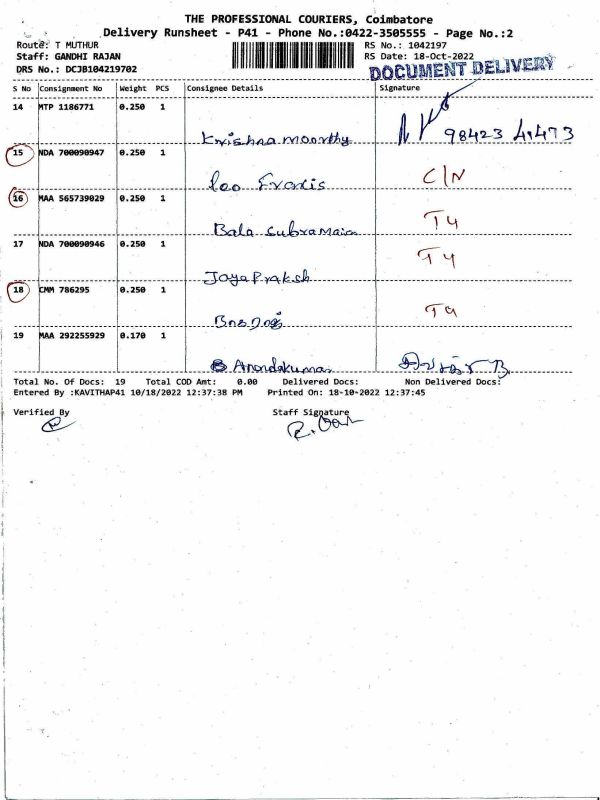 THE PROFESSIONAL COURIERS, Coimbatore
Delivery Runsheet - P41 - Phone No.:0422-3505555 - Page No.:2
Route: T MUTHUR RS No.: 1042197
Staff: GANDHI RAJAN RS Date: 18-Oct-2022
DRS No.: DCJB104219702 DOCUMENT DELIVERY
S No Consignment No Weight PCS Consignee Details Signature
14 MTP 1186771 0.250 1
Krishna moorthy 98423 41473
15 NDA 700090947 0.250 1
Leo Francis C/N
16 MAA 565739029 0.250 1
Bala Subramaian T4
17 NDA 700090946 0.250 1 T4
Jaya Praksh
18 CMM 786295 0.250 1
19 MAA 292255929 0.170 1
B Anandakumar
Total No. Of Docs: 19 Total COD Amt: 0.00 Delivered Docs: Non Delivered Docs:
Entered By :KAVITHAP41 10/18/2022 12:37:38 PM Printed On: 18-10-2022 12:37:45
Verified By Staff Signature